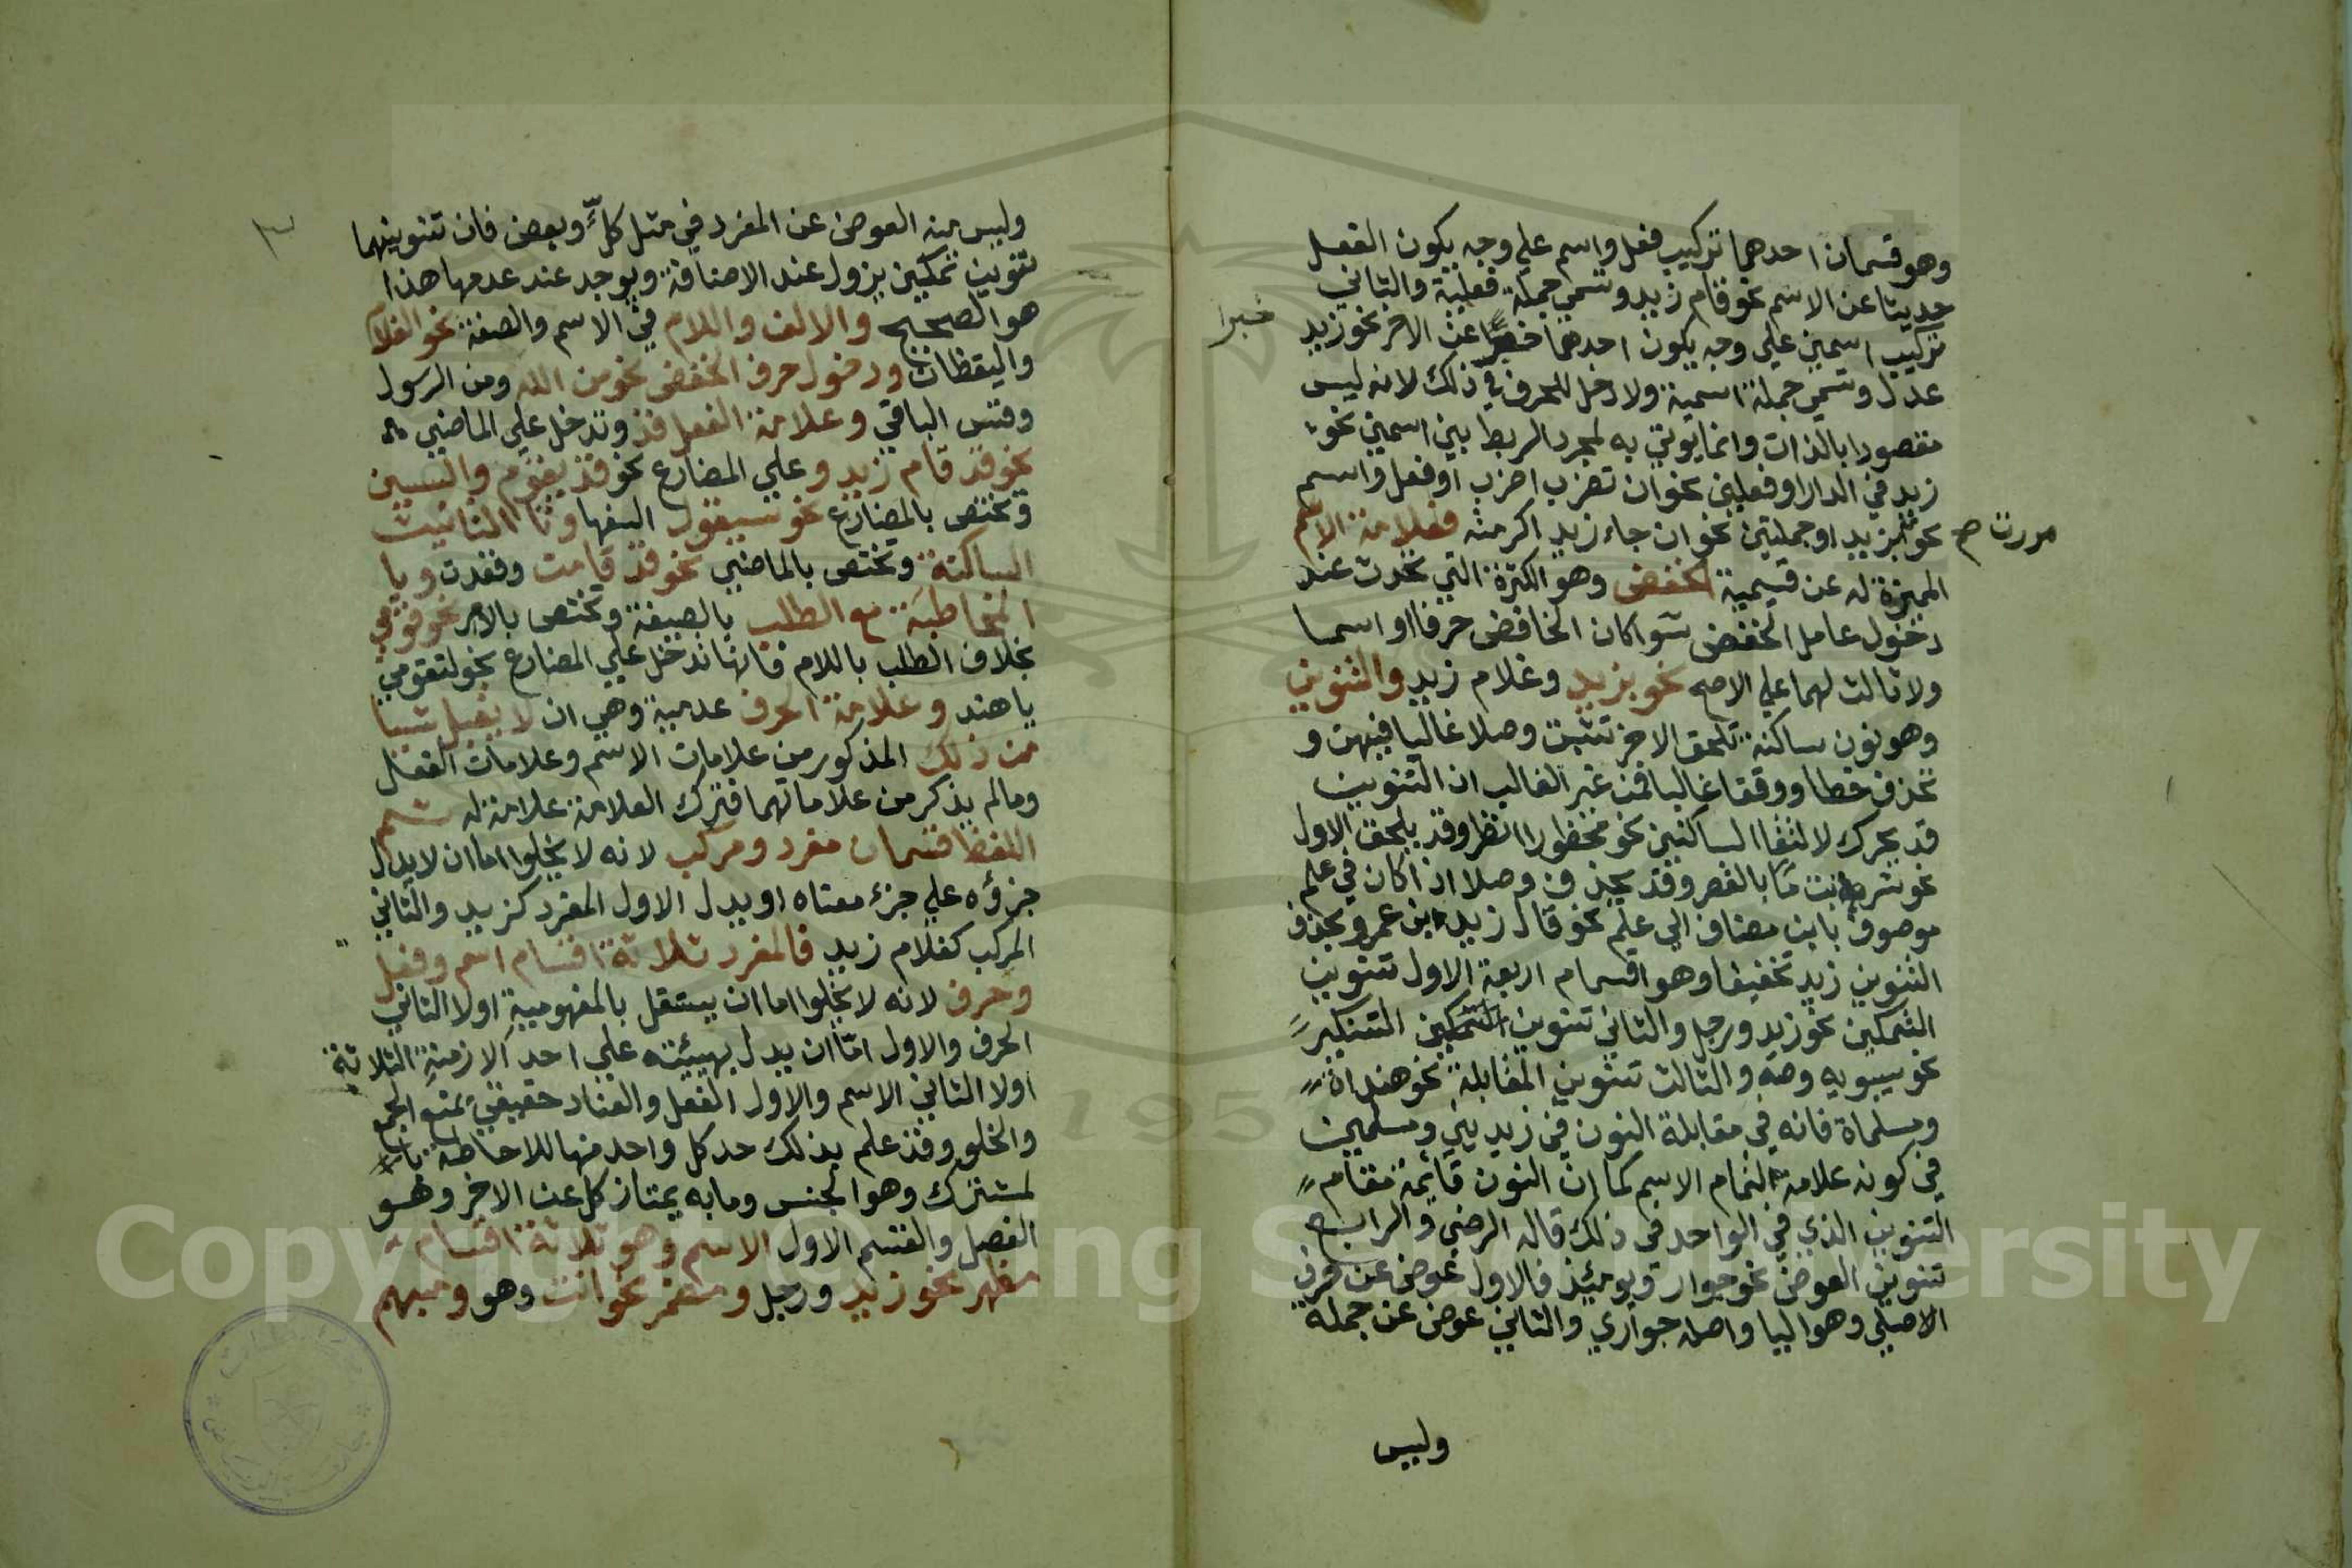 وهو قسمان احدهما تركيب فعل واسم علي وجه يكون الفعل
حديثا عن الاسم نحو قام زيد وتسمي جملة فعلية والثاني
تركيب اسمين علي وجه يكون احدهما خبرا عن الاخر نحو زيد
خبرا
عدل وتسمي جملة اسمية ولا دخل للحرف في ذلك لانه ليس
مقصودا بالذات وانما يوتي به لمجرد الربط بين اسمين نحو
زيد في الدار او فعلين نحو ان تضرب اضرب او فعل واسم
نحو بزيد او جملتين نحو ان جاء زيد اكرمته فعلامة الاسم
مررت صح
المميزة له عن قسيمية الخفض وهو الكثرة التي تحدث عند
دخول عامل الخفض سواكان الخافض حرفا او اسما
ولا ثالث لهما علي الاصح نحو بزيد وغلام زيد والتنوين
وهو نون ساكنة تلحق الاخر تثبت وصلا غالبا فيهن و
تحذف خطا ووقفا غالبا فمن غير الغالب ان التنوين
قد يحرك لالتقا الساكنين نحو محظورا انظر وقد يلحق الاول
نحو شربت مًا بالقصر وقد يحذف وصلا اذا كان في علم
موصوف بابن مضاف الي علم نحو قال زيد بن عمرو بحذف
التنوين زيد تخفيفا وهو اقسام اربعة الاول تنوين
التمكين نحو زيد ورجل والثاني تنوين التنكير
نحو سيبويه وصه والثالث تنوين المقابلة نحو هنداة
ومسلماة فانه في مقابلة النون في زيديني ومسلمين
في كونه علامة لتمام الاسم كما ان النون قايمة مقام
التنوين الذي في الواحد في ذلك قاله الرضي والرابع
تنوين العوض نحو جوار ويومئذ فالاول عوض عن حرف
الاصلي وهو اليا واصله جواري والثاني عوض عن جملة
وليس
٣
وليس منه العوض عن المفرد في مثل كلٍّ وبعض فان تنوينهما
تنوين تمكين يزول عند الاضافة ويوجد عند عدمها هذا
هو الصحيح والالف واللام في الاسم والصفة نحو الغلام
واليقظان ودخول حرف الخفض نحو من الله ومن الرسول
وقس الباقي وعلامة الفعل قد وتدخل علي الماضي
نحو قد قام زيد وعلي المضارع نحو قد يقوم والسين
وتختص بالمضارع نحو سيقول السفها وتا التانيث
الساكنة وتختص بالماضي نحو قد قامت وقعدت ويا
المخاطبة مع الطلب بالصيغة وتختص بالامر نحو قومي
بخلاف الطلب باللام فانها تدخل علي المضارع نحو لتقومي
ياهند وعلامة الحرف عدمية وهي ان لا يقبل شيا
من ذلك المذكور من علامات الاسم وعلامات الفعل
ومالم يذكر من علاماتهما فترك العلامة علامة له ثم
اللفظ قسمان مفرد ومركب لانه لا يخلوا اما ان لا يدل
جزؤه علي جزء معناه او يدل الاول المفرد كزيد والثاني
المركب كغلام زيد فالمفرد ثلاثة اقسام اسم وفعل
وحرف لانه لا يخلوا اما ان يستقل بالمفهومية اولا الثاني
الحرف والاول امّا ان يدل بهيئته علي احد الازمنة الثلاثة
اولا الثاني الاسم والاول الفعل والعناد حقيقي يمنع الجمع
والخلو وقد علم بذلك حد كل واحد منها للاحاطة
لمشترك وهو الجنس ومابه يمتاز كل عن الاخر وهو
الفصل والقسم الاول الاسم وهو ثلاثة اقسام
مظهر نحو زيد ورجل ومضمر نحو انت وهو ومبهم
Copyright © King Saud University
195